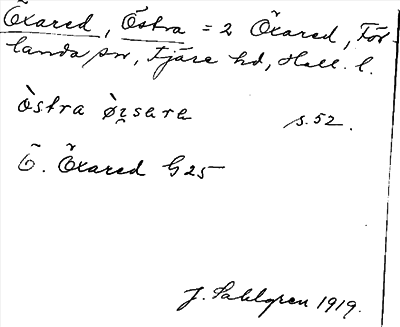 Öxared, Östra = 2 Öxared, För-
landa sn, Fjäre hd, Hall. l.
òstra s.52.
Ö. Öxared G25
J. Sahlgren 1919.